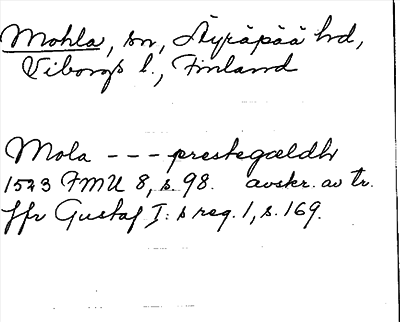 Mohla, sn, Äyräpää hd,
Viborgs l., Finland
Mola --- prestegældh
1523 FMU 8, s. 98. avskr. av tr.
jfr Gustaf I:s reg. 1, s. 169.